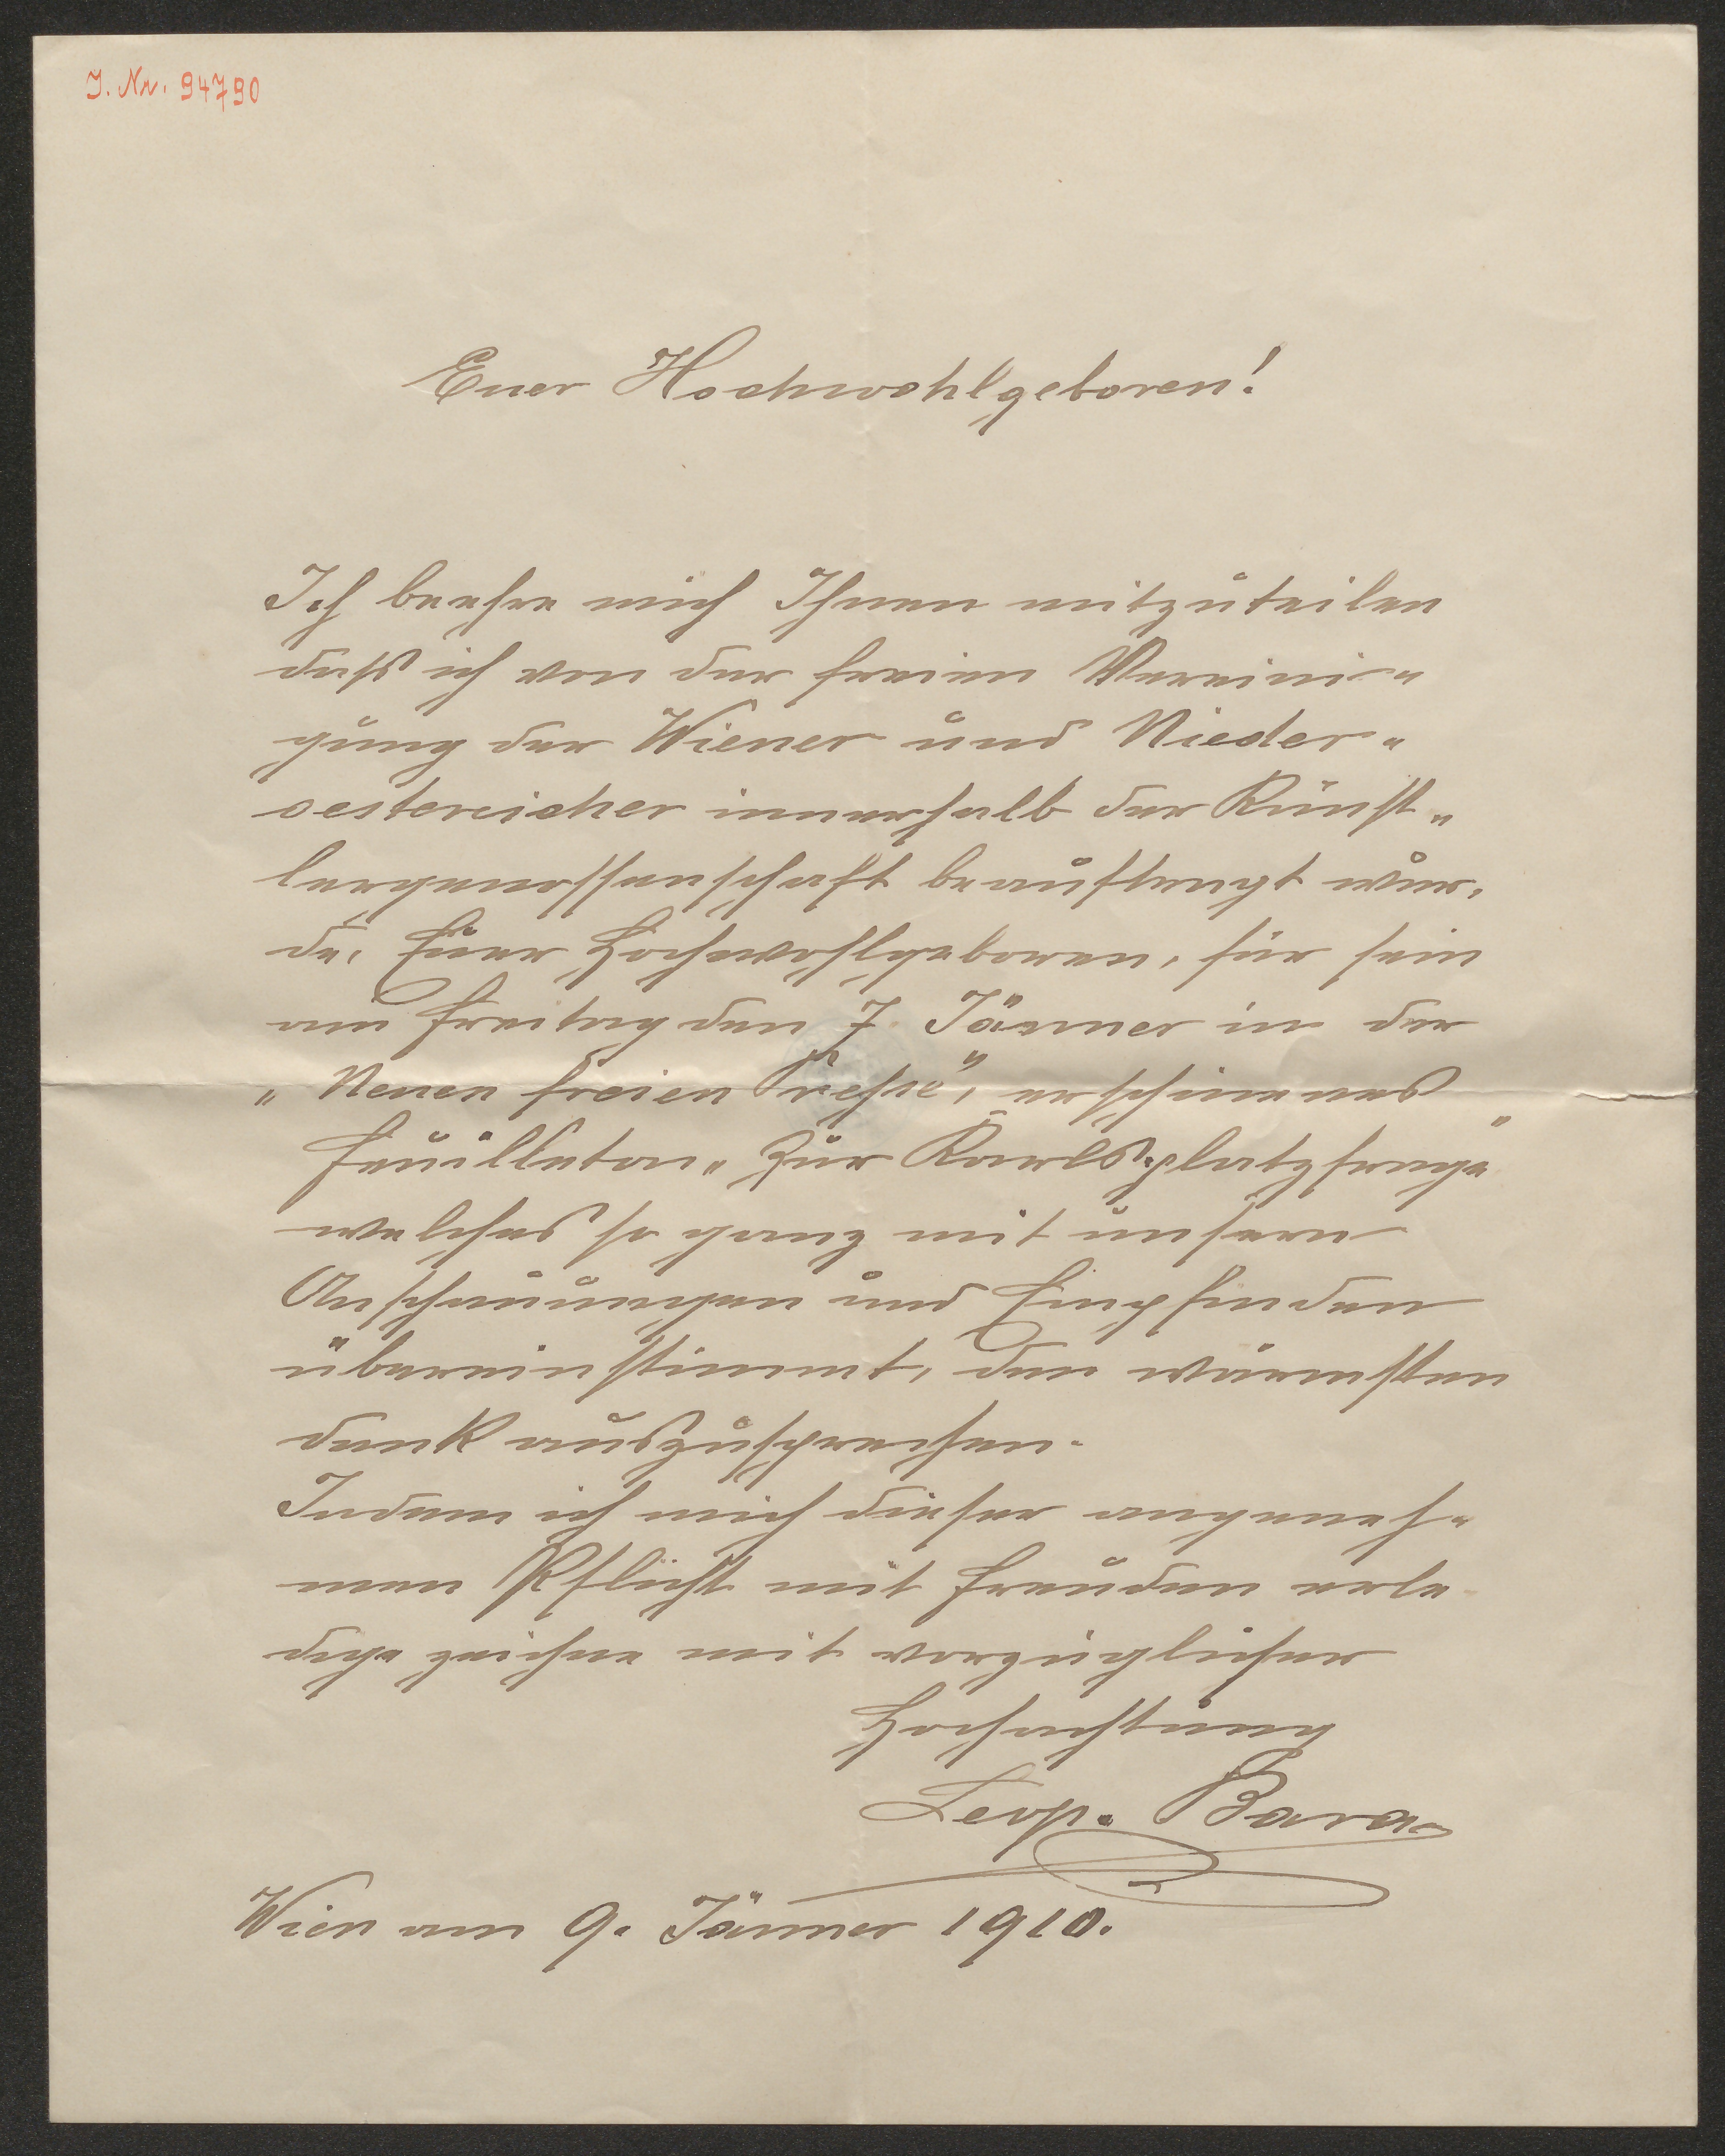 I. Nr. 94790
Euer Hochwohlgeboren!
Ich beehre mich Ihnen mitzuteilen
daß ich von der freien Vereini-
gung der Wiener und Nieder-
oestereicher innerhalb der Künst-
lergenossenschaft beauftragt wur-
de, Euer Hochwohlgeboren, für sein
am Freitag den 7. Jänner in der
"Neuen freien Presse", erschienenes
Feuilleton "Zur Karlsplatzfrage"
welches so ganz mit unsern
Anschauungen und Empfinden
übereinstimmt, den wärmsten
Dank auszusprechen.
Indem ich mich dieser angeneh-
men Pflicht mit Freuden erle-
dige zeichne mit vorzüglicher
Hochachtung
Leop. Bara
Wien am 9. Jänner 1910.